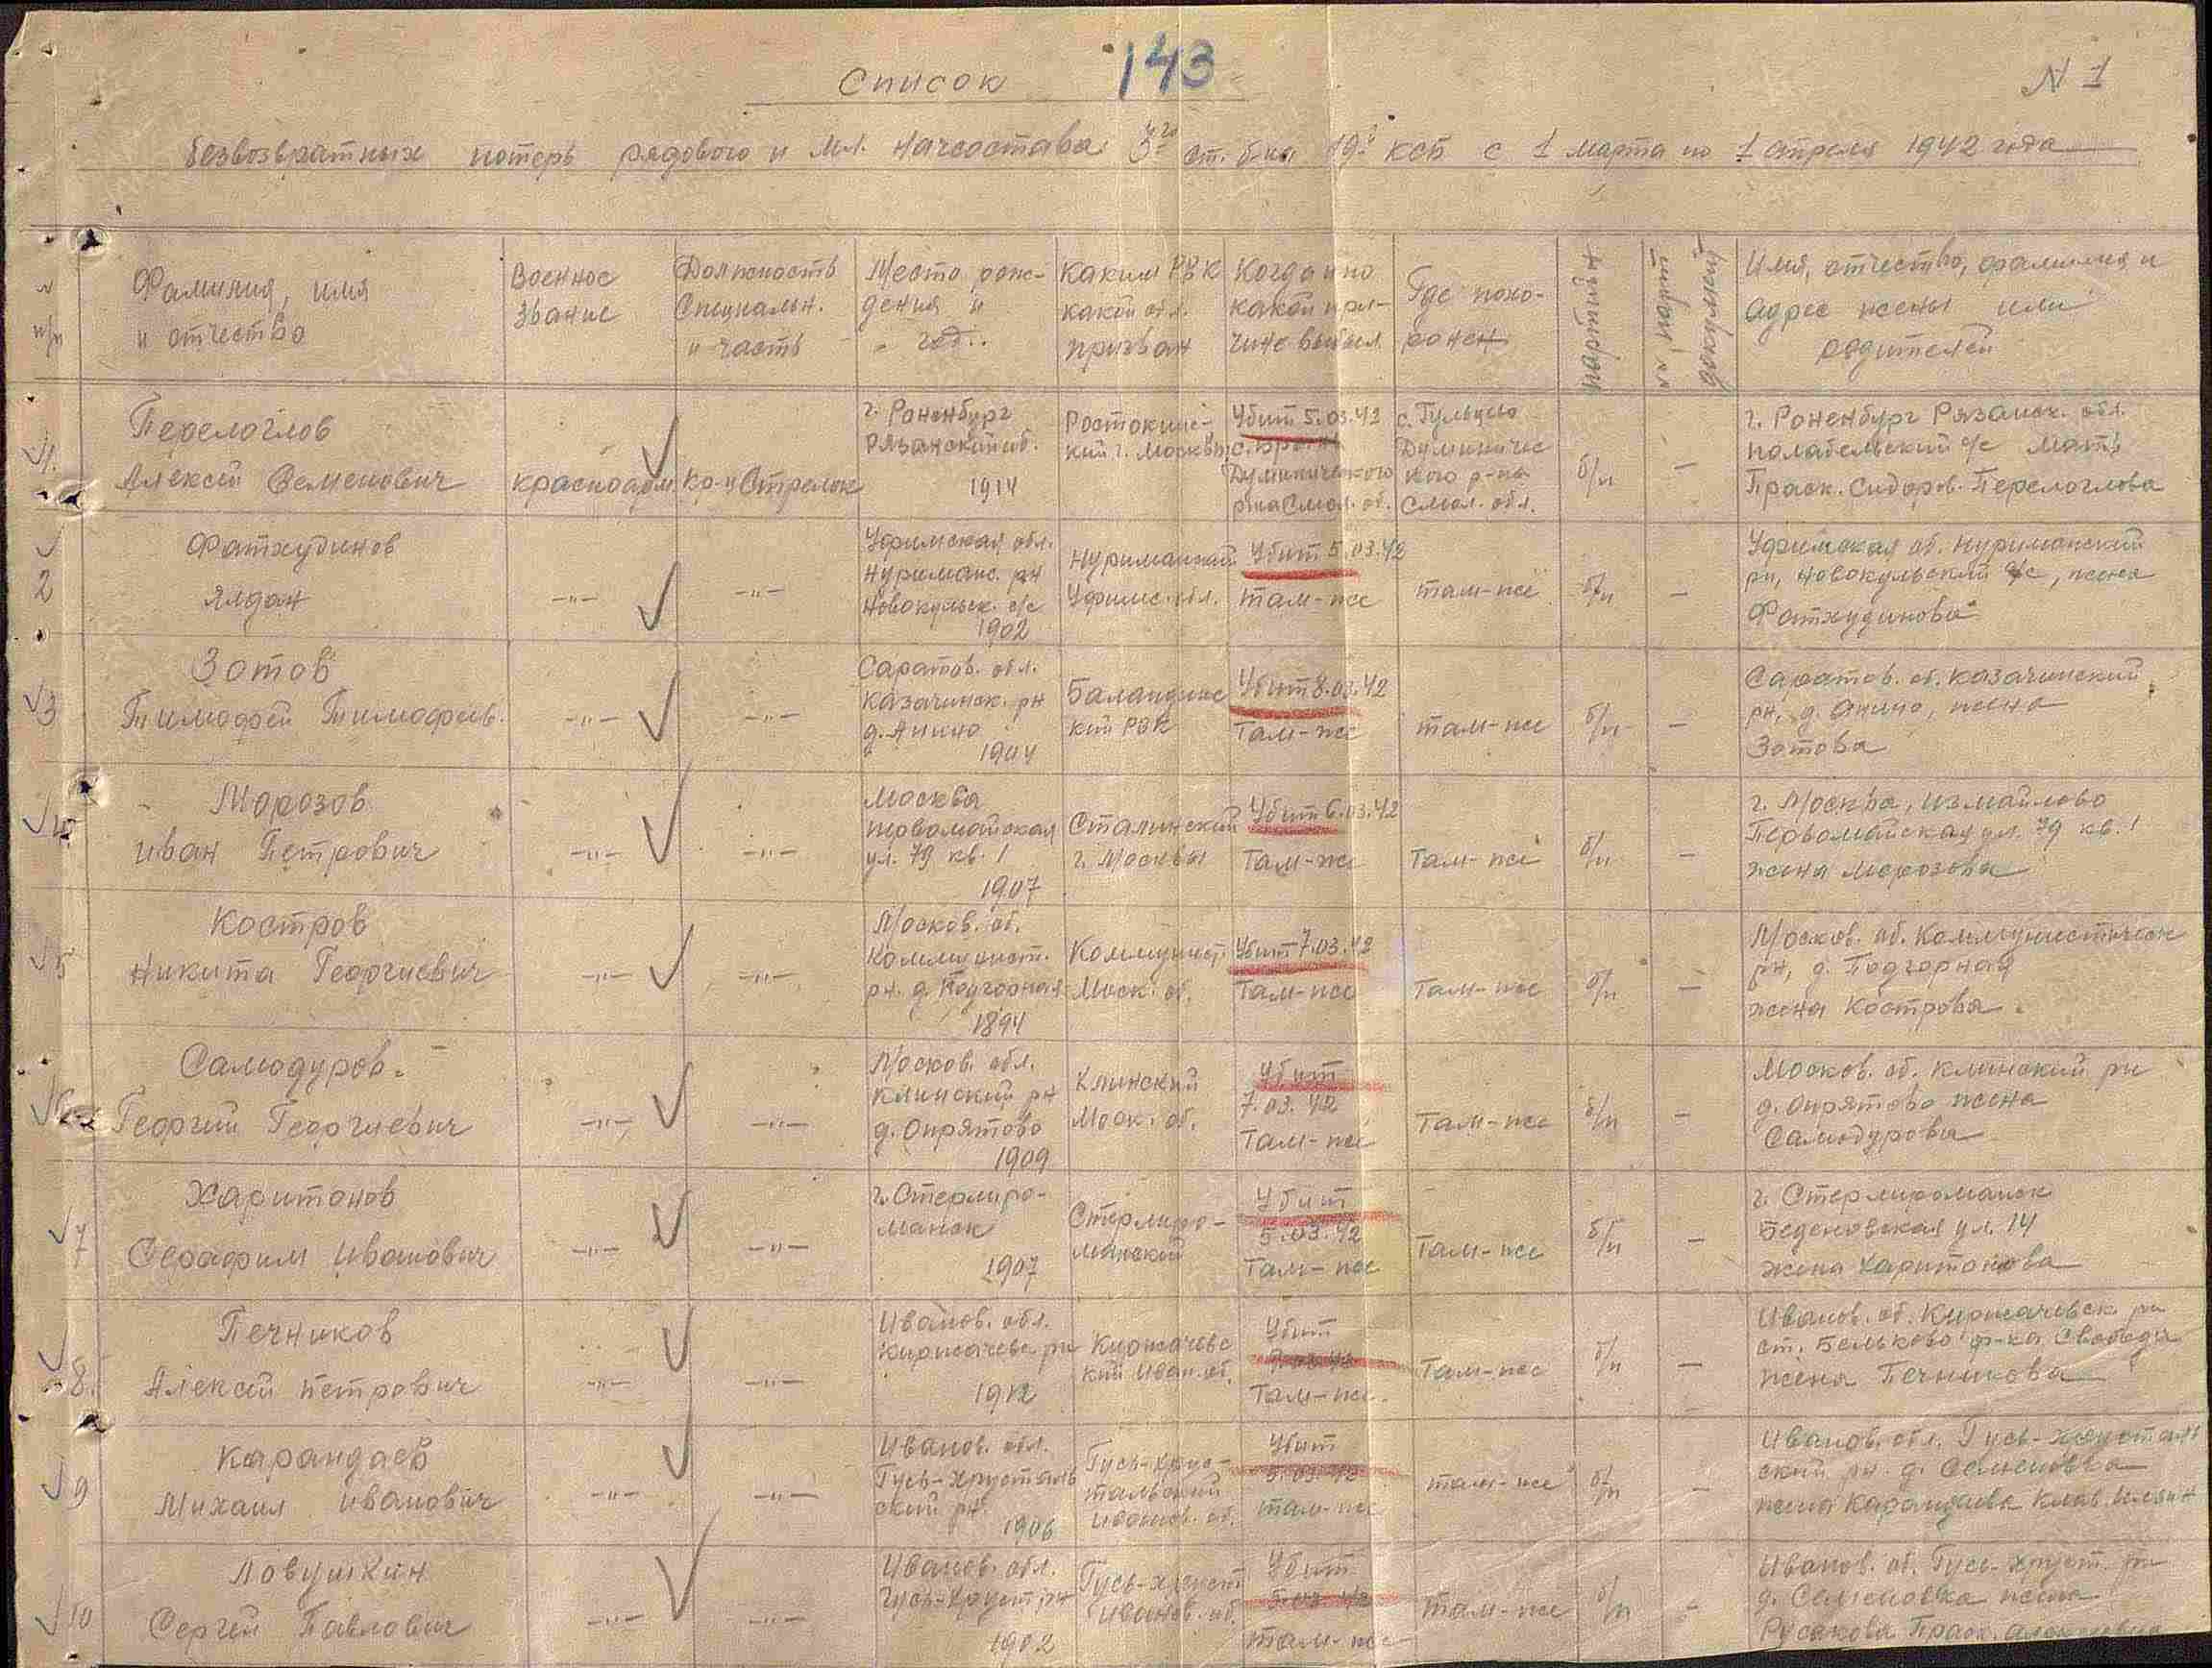 143
Список
N 1
безвозвратных потерь рядового и мл. начсостава 3го от. б-на 19й ксб с 1 марта по 1 апреля 1942 года
N п/п
Фамилия, имя
и отчество
Военное
звание
Должность
Специальн.
и часть
Место рож-
дения и
год.
Каким РВК
какой обл.
призван
Когда и по
какой при-
чине выбыл
Где похо-
ронен
партийн
документ
Имя, отчество, фамилия и
адрес жены или
родителей
1.
Перелоглов
Алексей Семенович
красноарм.
кр-ц Стрелок
г. Роненбург
Рязанской об.
1914
Ростокинс-
кий г. Москвы
Убит 5.03.42
Думиничского
р-на Смол. об.
Думиничс
кого р-на
Смол. обл.
б/п
—
г. Роненбург Рязанск. обл.
с/с Мать
Праск. Сидоров. Перелоглова
2
Фатхудинов
Ялдан
-"-
-"-
Уфимская обл.
Нуриманс. рн
Новокульск. с/с
1902
Нуриманский
Уфимс. обл.
Убит 5.03.42
там-же
там-же
б/п
—
Уфимская об. Нуриманский
рн, Новокульский с/с, жена
Фатхудинова
3
Зотов
Тимофей Тимофеев.
-"-
-"-
Саратов. обл.
Казачинск. рн
д. Анино
1904
Баландинс
кий РВК
Убит 8.03.42
Там-же
там-же
б/п
—
Саратов. об. Казачинский
рн, д. Анино, жена
Зотова
4
Морозов
Иван Петрович
-"-
-"-
Москва
Первомайская
ул. 79 кв. 1
1907
Сталинский
г. Москвы
Убит 6.03.42
Там-же
Там-же
б/п
—
г. Москва, Измайлово
Первомайская ул. 79 кв. 1
жена Морозова
5
Костров
Никита Георгиевич
-"-
-"-
Москов. об.
Коммунист.
рн. д. Подгорная
1894
Коммунист.
Моск. об.
Убит 7.03.42
Там-же
Там-же
б/п
—
Москов. об. Коммунистическ
рн, д. Подгорная
жена Кострова.
6
Самодуров
Георгий Георгиевич
-"-
-"-
Москов. обл.
Клинский рн
д. Опрятово
1909
Клинский
Моск. об.
Убит
7.03.42
Там-же
Там-же
б/п
—
Москов. об. Клинский рн
д. Опрятово жена
Самодурова
7
Харитонов
Серафим Иванович
-"-
-"-
г. Стерлиро-
манск
1907
Стерлиро-
манский
Убит
5.03.42
Там-же
Там-же
б/п
—
г. Стерлироманск
Беденовская ул. 14
жена Харитонова
8.
Печников
Алексей Петрович
-"-
-"-
Иванов. обл.
Киржачевс рн
1912
Киржачевс
кий Иван. об.
Убит
Там-же.
Там-же
б/п
—
Иванов. об. Киржачевск рн
ст. Бельково ф-ка Свобода
жена Печникова
9
Карандаев
Михаил Иванович
-"-
-"-
Иванов. обл.
Гусь-Хрусталь
ский рн.
1906
Гусь-Хрус-
тальский
Иванов. об.
Убит
5.03.42
там-же
там-же
б/п
—
Иванов. обл. Гусь-Хрусталь
ский рн. д. Семеновка
жена Карандаева Клав. Ильин
10
Ловушкин
Сергей Павлович
-"-
-"-
Иванов. обл.
Гусь-Хруст рн
1902
Гусь-Хруст
Иванов. об.
Убит
5.03.42
Там-же
Там-же
б/п
—
Иванов. об. Гусь-Хруст. рн
д. Семеновка жена
Русакова Праск. Алексеевна